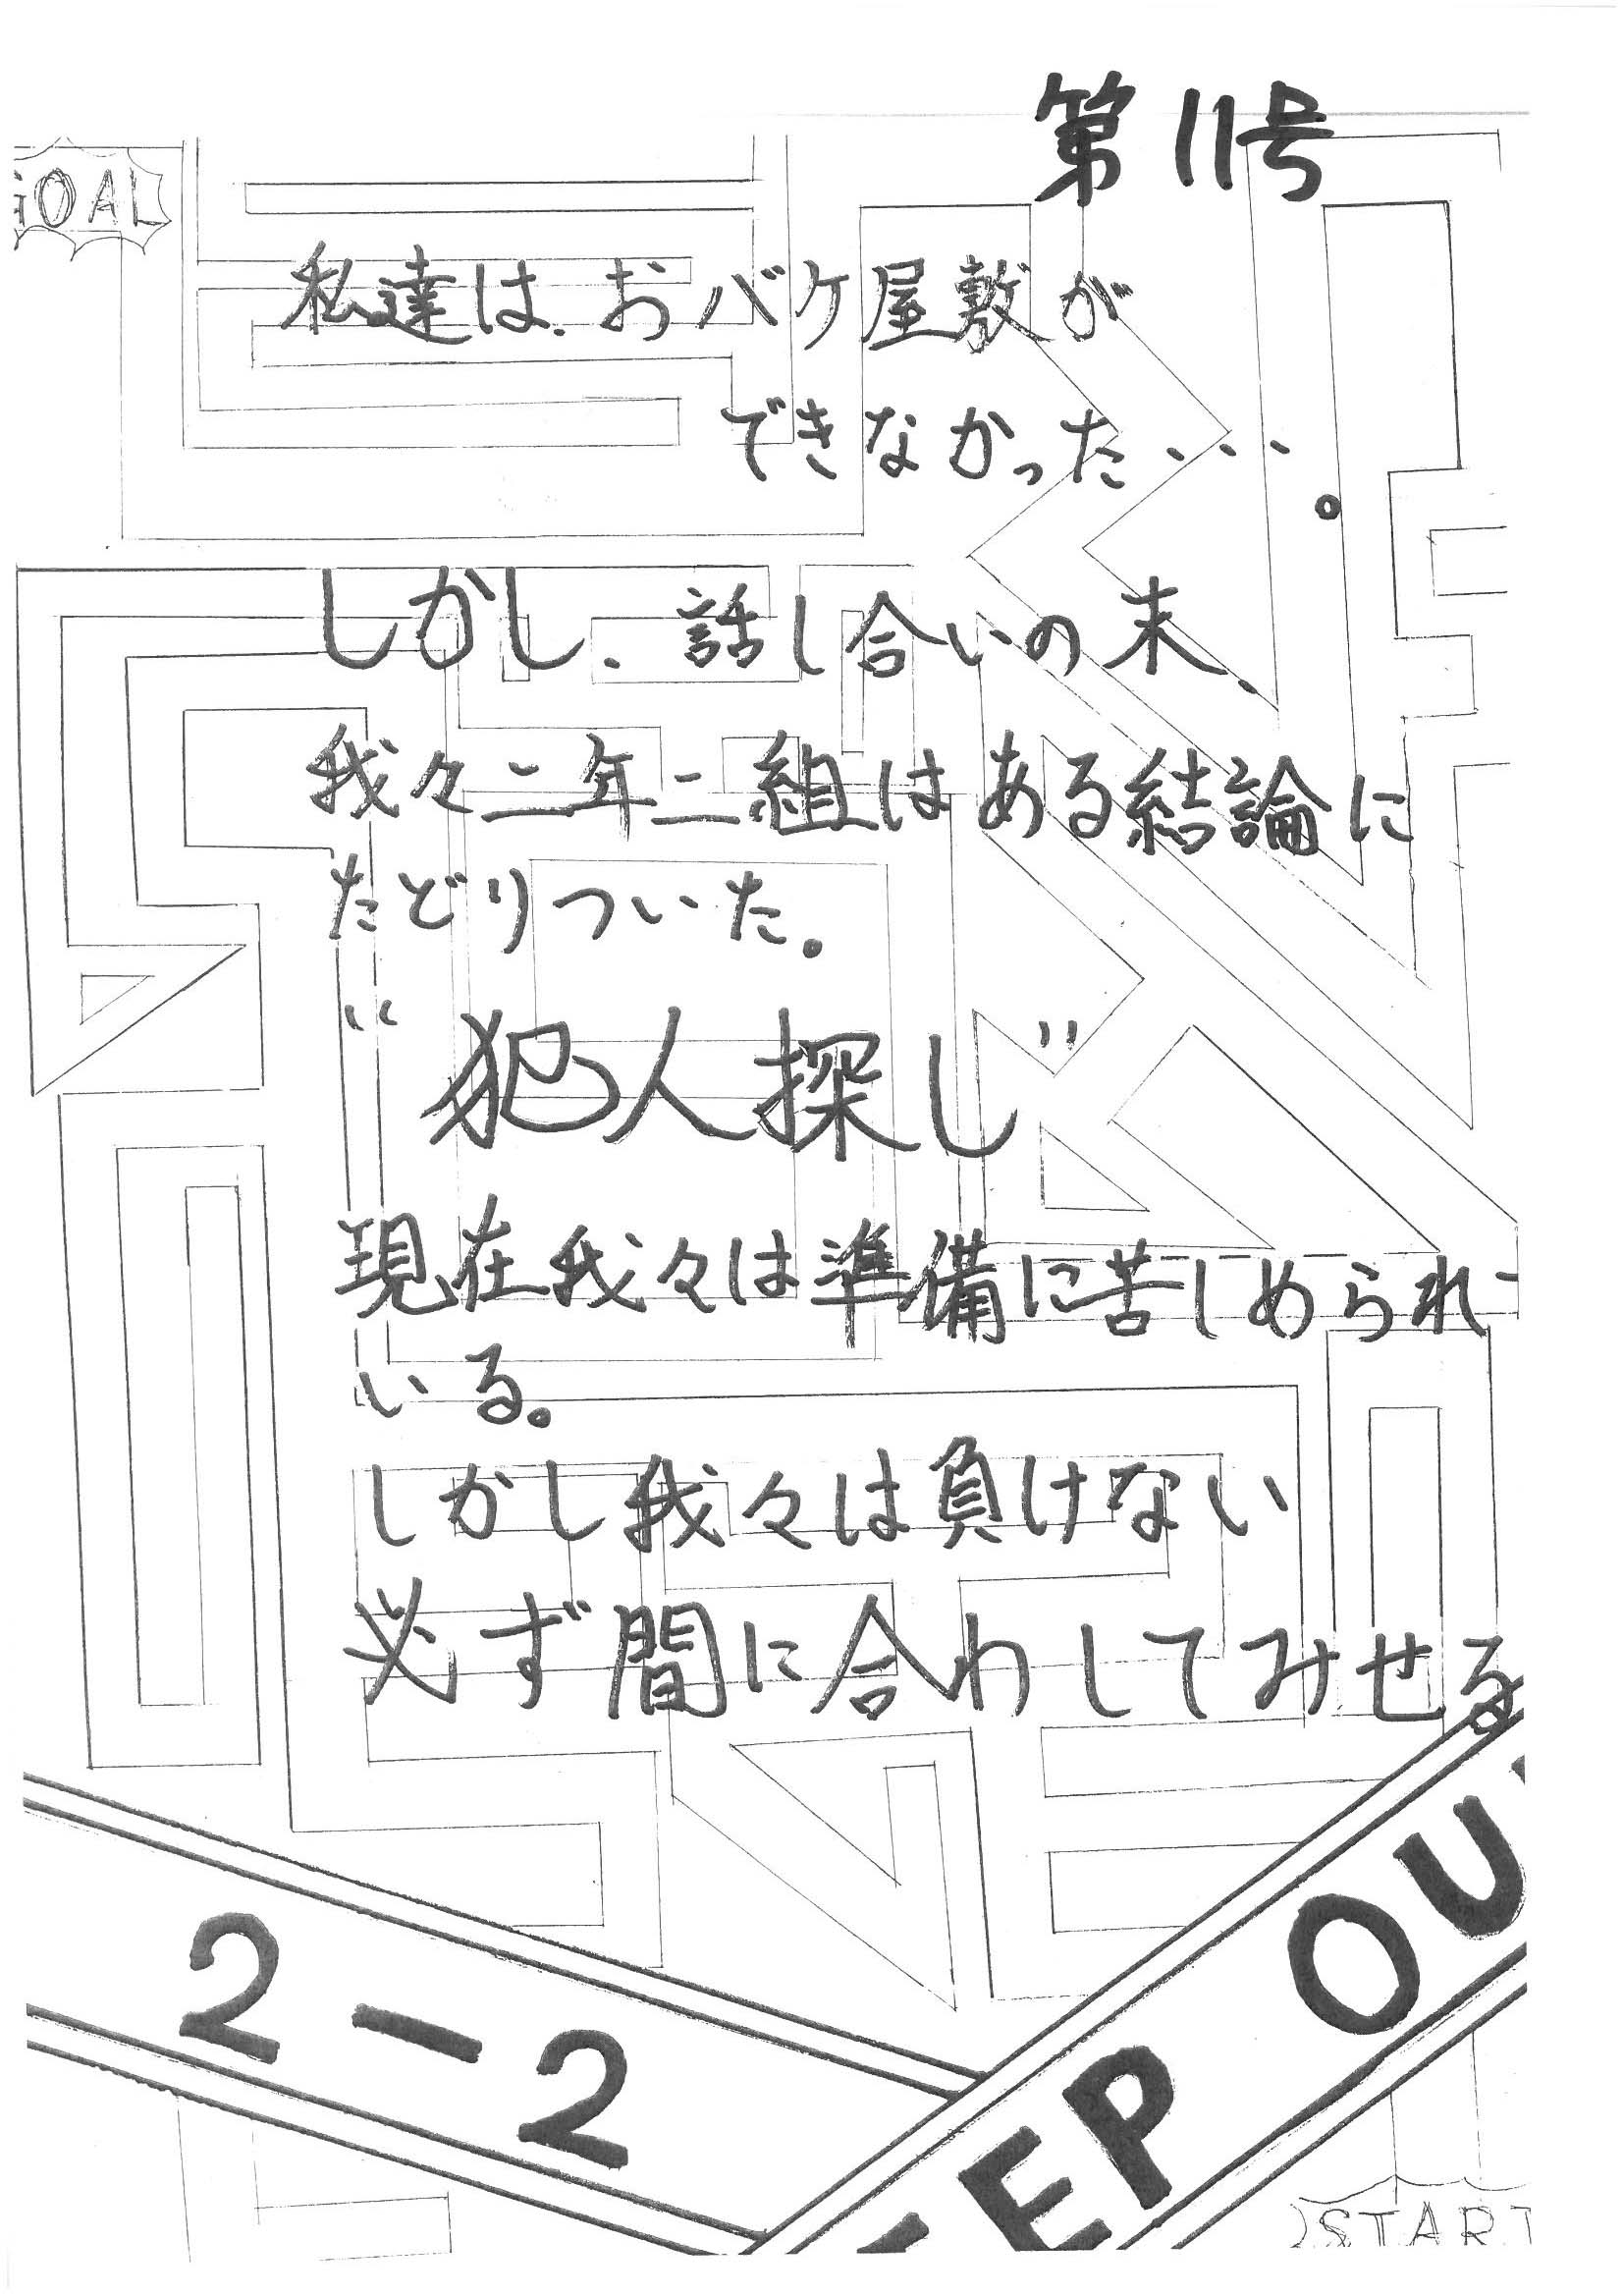 第11号
GOAL
私達は、おバケ屋敷が
できなかった・・・。
しかし、話し合いの末、
我々二年二組はある結論に
たどりついた。
“犯人探し”
現在我々は準備に苦しめられ
いる。
しかし我々は負けない
必ず間に合わしてみせる
2-2
EP OU
START